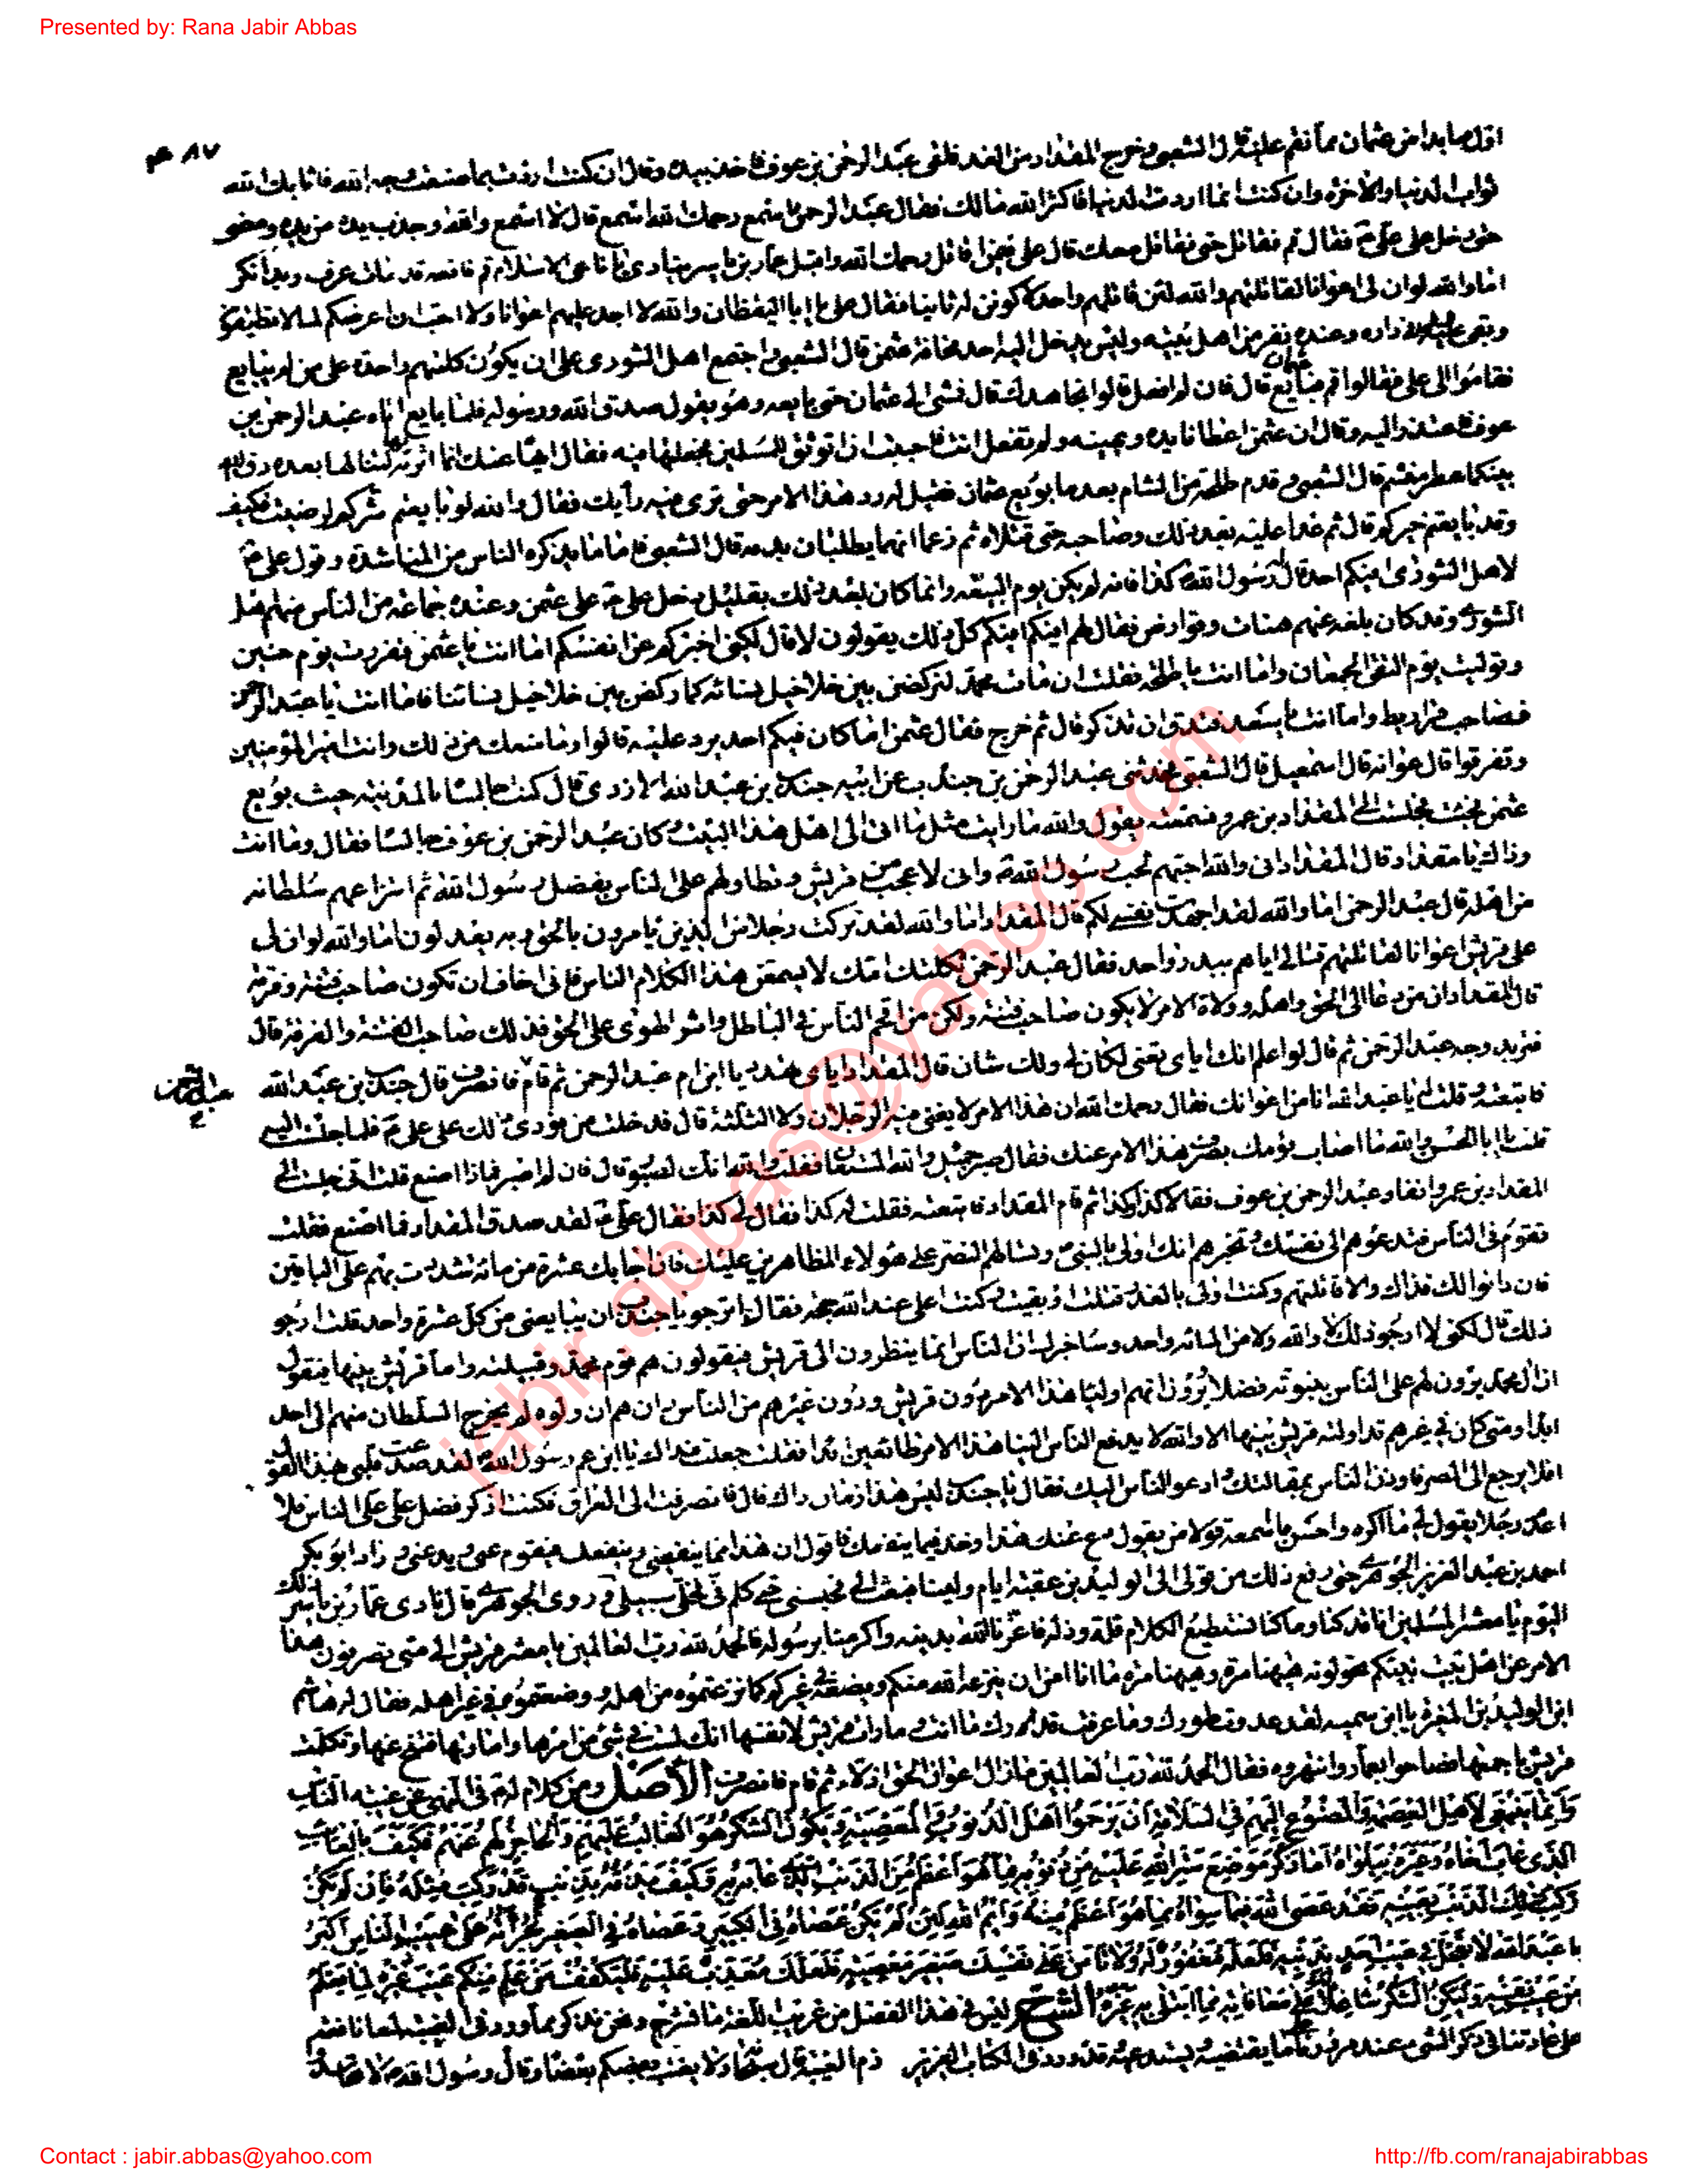 Presented by: Rana Jabir Abbas
٤٨٧
اول ما بدا من عثمان مما نقم عليه قال الشعبى وخرج المقداد من الغد فلقى عبد الرحمن بن عوف فاخذ بيده وقال ان كنت اردت بما صنعت وجه الله فاثابك الله
ثواب الدنيا والاخرة وان كنت انما اردت الدنيا فاكثر الله مالك فقال عبد الرحمن اسمع رحمك الله اسمع قال لا اسمع والله وجذب يده من يده ومضى
حتى دخل على على ع فقال قم فقاتل حتى نقاتل معك قال على فبمن اقاتل رحمك الله واقبل عمار بن ياسر ينادى يا ناعى الاسلام قم فانعه قد مات عرف وبدا نكر
اما والله لو ان لى اعوانا لقاتلتهم والله لئن قاتلهم واحد لاكونن له ثانيا فقال على ع يا ابا اليقظان والله لا اجد عليهم اعوانا ولا احب ان اعرضكم لما لا تطيقون
وبقى ع فى داره وعنده نفر من اهل بيته وليس يدخل اليه احد مخافة عثمن قال الشعبى واجتمع اهل الشورى على ان يكون كلمتهم واحدة على من لم يبايع
فقاموا الى على فقالوا قم فبايع عثمان قال فان لم افعل قالوا نجاهدك قال فمشى الى عثمان حتى بايعه وهو يقول صدق الله ورسوله فلما بايع اتاه عبد الرحمن بن
عوف فاعتذر اليه وقال ان عثمن اعطانا يده ويمينه ولم تفعل انت فاحببت ان اتوثق للمسلمين فجعلتها فيه فقال ايها عنك انما اثرته بها لتنالها بعده دق الله
بينكما عطر منشم قال الشعبى وقدم طلحة من الشام بعد ما بويع عثمان فقيل له رد هذا الامر حتى ترى فيه رأيك فقال والله لو بايعتم شركم لرضيت فكيف
وقد بايعتم خيركم قال ثم عدا عليه بعد ذلك وصاحبه حتى قتلاه ثم زعما انهما يطلبان بدمه قال الشعبى فاما ما يذكره الناس من المناشدة وقول على ع
لاهل الشورى افيكم احد قال له رسول الله كذا فانه لم يكن يوم البيعة وانما كان بعد ذلك بقليل دخل على ع على عثمن وعنده جماعة من الناس منهم اهل
الشورى وقد كان بلغه عنهم هنات وقوارص فقال لهم افيكم افيكم كل ذلك يقولون لا قال لكنى اخبركم عن انفسكم اما انت يا عثمن ففررت يوم حنين
وتوليت يوم التقى الجمعان واما انت يا طلحة فقلت ان مات محمد لنركضن بين خلاخيل نسائه كما ركض بين خلاخيل نسائنا فاما انت يا عبد الرحمن
فصاحب قراريط واما انت يا سعد فتدق ان تذكر قال ثم خرج فقال عثمن اما كان فيكم احد يرد عليه قالوا وما منعك من ذلك وانت امير المؤمنين
وتفرقوا قال عوانة قال اسمعيل قال الشعبى فحدثنى عبد الرحمن بن جندب عن ابيه جندب بن عبد الله الازدى قال كنت جالسا بالمدينة حيث بويع
عثمن فجئت فجلست الى المقداد بن عمرو فسمعته يقول والله ما رايت مثل ما اتى الى اهل هذا البيت وكان عبد الرحمن بن عوف جالسا فقال وما انت
وذاك يا مقداد قال المقداد انى والله احبهم لحب رسول الله ص وانى لاعجب من قريش وتطاولهم على الناس بفضل رسول الله ثم انتزاعهم سلطانه
من اهله قال عبد الرحمن اما والله لقد اجهدت نفسى لكم قال المقداد اما والله لقد تركت رجلا من الذين يامرون بالحق وبه يعدلون اما والله لو ان لى
على قريش اعوانا لقاتلتهم قتالى اياهم ببدر واحد فقال عبد الرحمن ثكلتك امك لا يسمعن هذا الكلام الناس فانى اخاف ان تكون صاحب فتنة وفرقة
قال المقداد ان من دعا الى الحق واهله وولاة الامر لا يكون صاحب فتنة ولكن من اقحم الناس فى الباطل واثر الهوى على الحق فذلك صاحب الفتنة والفرقة قال
فتربد وجه عبد الرحمن ثم قال لو اعلم انك اياى تعنى لكان لى ولك شان قال المقداد اياى تهدد يا ابن ام عبد الرحمن ثم قام فانصرف قال جندب بن عبد الله
فاتبعته وقلت له يا عبد الله انا من اعوانك فقال رحمك الله ان هذا الامر لا يغنى فيه الرجلان ولا الثلثة قال فدخلت من فورى ذلك على على ع فلما جلست اليه
قلت يا ابا الحسن والله ما اصاب قومك بصرف هذا الامر عنك فقال صبر جميل والله المستعان فقلت والله انك لصبور قال فان لم اصبر فماذا اصنع قلت انى جلست الى
المقداد بن عمرو انفا وعبد الرحمن بن عوف فقالا كذا وكذا ثم قام المقداد فاتبعته فقلت له كذا فقال لى كذا فقال على ع لقد صدق المقداد فما اصنع فقلت
تقوم فى الناس فتدعوهم الى نفسك وتخبرهم انك اولى بالنبى ص وتسالهم النصر على هؤلاء المظاهرين عليك فان اجابك عشرة من مائة شددت بهم على الباقين
فان دانوا لك فذاك والا قاتلتهم وكنت اولى بالعذر قتلت او بقيت وكنت اعلى عند الله حجة فقال اترجو يا جندب ان يبايعنى من كل عشرة واحد قلت ارجو
ذلك قال لكنى لا ارجو ذلك لا والله ولا من المائة واحد وساخبرك ان الناس انما ينظرون الى قريش فيقولون هم قوم محمد وقبيلته واما قريش بينها فيقول
ان ال محمد يرون لهم على الناس بنبوته فضلا يرون انهم اولياء هذا الامر دون قريش ودون غيرهم من الناس وان هم ان ولوه لم يخرج السلطان منهم الى احد
ابدا ومتى كان فى غيرهم تداولته قريش بينها لا والله لا يدفع الناس الينا هذا الامر طائعين ابدا فقلت جعلت فداك يا ابن عم رسول الله لقد صدعت قلبى بهذا القول
افلا ارجع الى المصر فاوذن الناس بمقالتك وادعو الناس اليك فقال يا جندب ليس هذا زمان ذاك قال فانصرفت الى العراق فكنت اذكر فضل على على الناس فلا
اعدم رجلا يقول لى ما اكره واحسن ما اسمعه قول من يقول دع عنك هذا وخذ فيما ينفعك فاقول ان هذا مما ينفعنى وينفعك فيقوم عنى ويدعنى وزاد ابو بكر
احمد بن عبد العزيز الجوهرى حتى رفع ذلك من قولى الى الوليد بن عقبة ايام ولينا فبعث الى فحبسنى حتى كلم فى فخلى سبيلى وروى الجوهرى قال نادى عمار بن ياسر ذلك
اليوم يا معشر المسلمين انا قد كنا وما كنا نستطيع الكلام قلة وذلة فاعزنا الله بدينه واكرمنا برسوله فالحمد لله رب العالمين يا معشر قريش الى متى تصرفون هذا
الامر عن اهل بيت نبيكم تحولونه هيهنا مرة وهيهنا مرة ما انا امن ان ينزعه الله منكم ويضعه فى غيركم كما نزعتموه من اهله ووضعتموه فى غير اهله فقال له هاشم
ابن الوليد بن المغيرة يا ابن سمية لقد عدوت طورك وما عرفت قدرك ما انت وما رات قريش لانفسها انك لست فى شئ من امرها وامارتها فتنح عنها وتكلمت
قريش باجمعها فصاحوا بعمار وانتهروه فقال الحمد لله رب العالمين ما زال اعوان الحق اذلاء ثم قام فانصرف الأصل ومن كلام له ع فى النهى عن غيبة الناس
وَإِنَّمَا يَنْبَغِى لِأَهْلِ الْعِصْمَةِ وَالْمَصْنُوعِ إِلَيْهِمْ فِى السَّلَامَةِ أَنْ يَرْحَمُوا أَهْلَ الذُّنُوبِ وَالْمَعْصِيَةِ وَيَكُونَ الشُّكْرُ هُوَ الْغَالِبَ عَلَيْهِمْ وَالْحَاجِزَ لَهُمْ عَنْهُمْ فَكَيْفَ بِالْعَائِبِ
الَّذِى عَابَ أَخَاهُ وَعَيَّرَهُ بِبَلْوَاهُ أَمَا ذَكَرَ مَوْضِعَ سَتْرِ اللهِ عَلَيْهِ مِنْ ذُنُوبِهِ مَا هُوَ أَعْظَمُ مِنَ الذَّنْبِ الَّذِى عَابَهُ بِهِ وَكَيْفَ يَذُمُّهُ بِذَنْبٍ قَدْ رَكِبَ مِثْلَهُ فَإِنْ لَمْ يَكُنْ
رَكِبَ ذَلِكَ الذَّنْبَ بِعَيْنِهِ فَقَدْ عَصَى اللهَ فِيمَا سِوَاهُ مِمَّا هُوَ أَعْظَمُ مِنْهُ وَأَيْمُ اللهِ لَئِنْ لَمْ يَكُنْ عَصَاهُ فِى الْكَبِيرِ وَعَصَاهُ فِى الصَّغِيرِ لَجُرْأَتُهُ عَلَى عَيْبِ النَّاسِ أَكْبَرُ
يَا عَبْدَ اللهِ لَا تَعْجَلْ فِى عَيْبِ أَحَدٍ بِذَنْبِهِ فَلَعَلَّهُ مَغْفُورٌ لَهُ وَلَا تَأْمَنْ عَلَى نَفْسِكَ صَغِيرَ مَعْصِيَةٍ فَلَعَلَّكَ مُعَذَّبٌ عَلَيْهِ فَلْيَكْفُفْ مَنْ عَلِمَ مِنْكُمْ عَيْبَ غَيْرِهِ لِمَا يَعْلَمُ
مِنْ عَيْبِ نَفْسِهِ وَلْيَكُنِ الشُّكْرُ شَاغِلًا لَهُ عَلَى مُعَافَاتِهِ مِمَّا ابْتُلِىَ بِهِ غَيْرُهُ الشرح ليس فى هذا الفصل من غريب اللغة ما نشرح ونحن نذكر مما ورد فى الغيبة لمعا نافعة
على عادتنا فى ذكر الشئ عند مرورنا على ما يقتضيه ويستدعيه قد ورد فى الكتاب العزيز ذم الغيبة قال سبحانه ولا يغتب بعضكم بعضا وقال رسول الله ص لا تحاسدوا
jabir.abbas@yahoo.com
Contact : jabir.abbas@yahoo.com
http://fb.com/ranajabirabbas